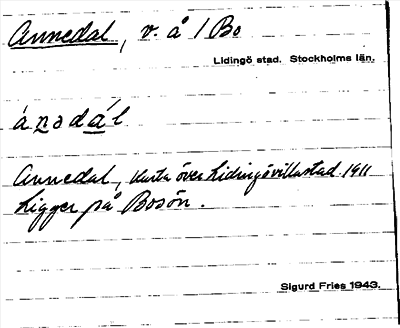 Annedal, v. å 1 Bo
Lidingö stad. Stockholms län.
ánədál
Annedal, Karta över Lidingövillastad 1911
Ligger på Bosön.
Sigurd Fries 1943.